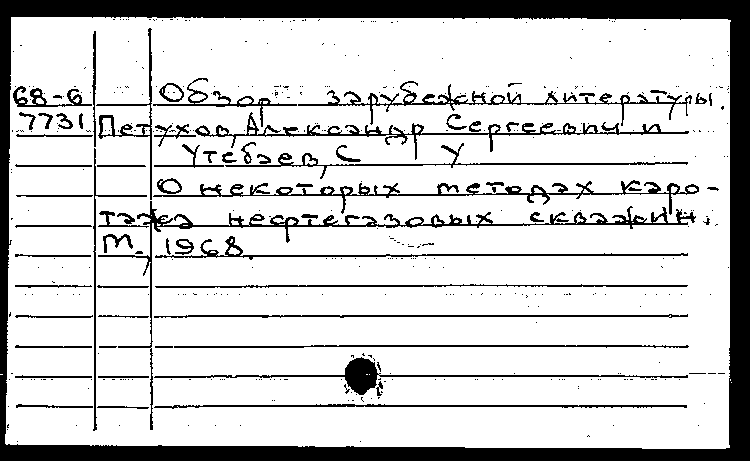 Обзор зарубежной литературы.
68-6
7731 Петухов, Александр Сергеевич и
Утебаев, С У
О некоторых методах каро-
тажа нефтегазовых скважин.
М., 1968.